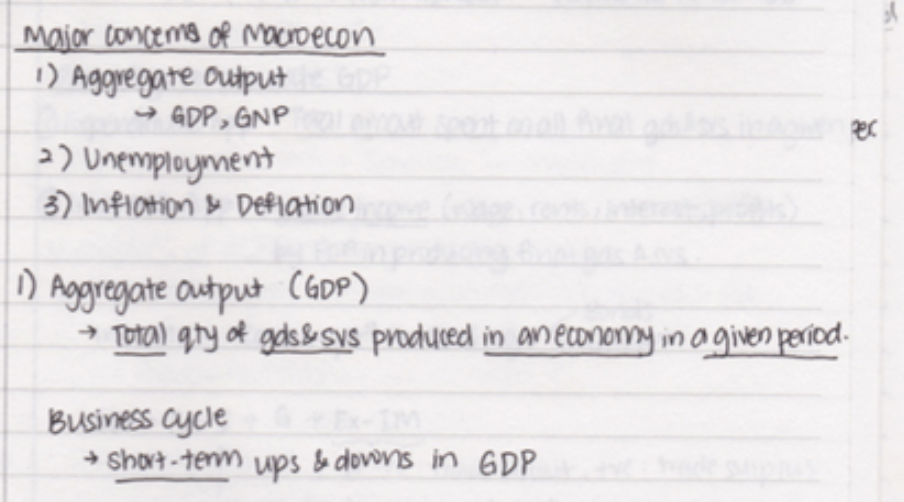 Major concerns of Macroecon
1) Aggregate Output
→ GDP, GNP
2) Unemployment
3) Inflation & Deflation
1) Aggregate output (GDP)
→ Total qty of gds & svs produced in an economy in a given period.
Business cycle
→ short-term ups & downs in GDP